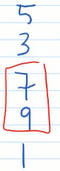 5
3
7
9
1